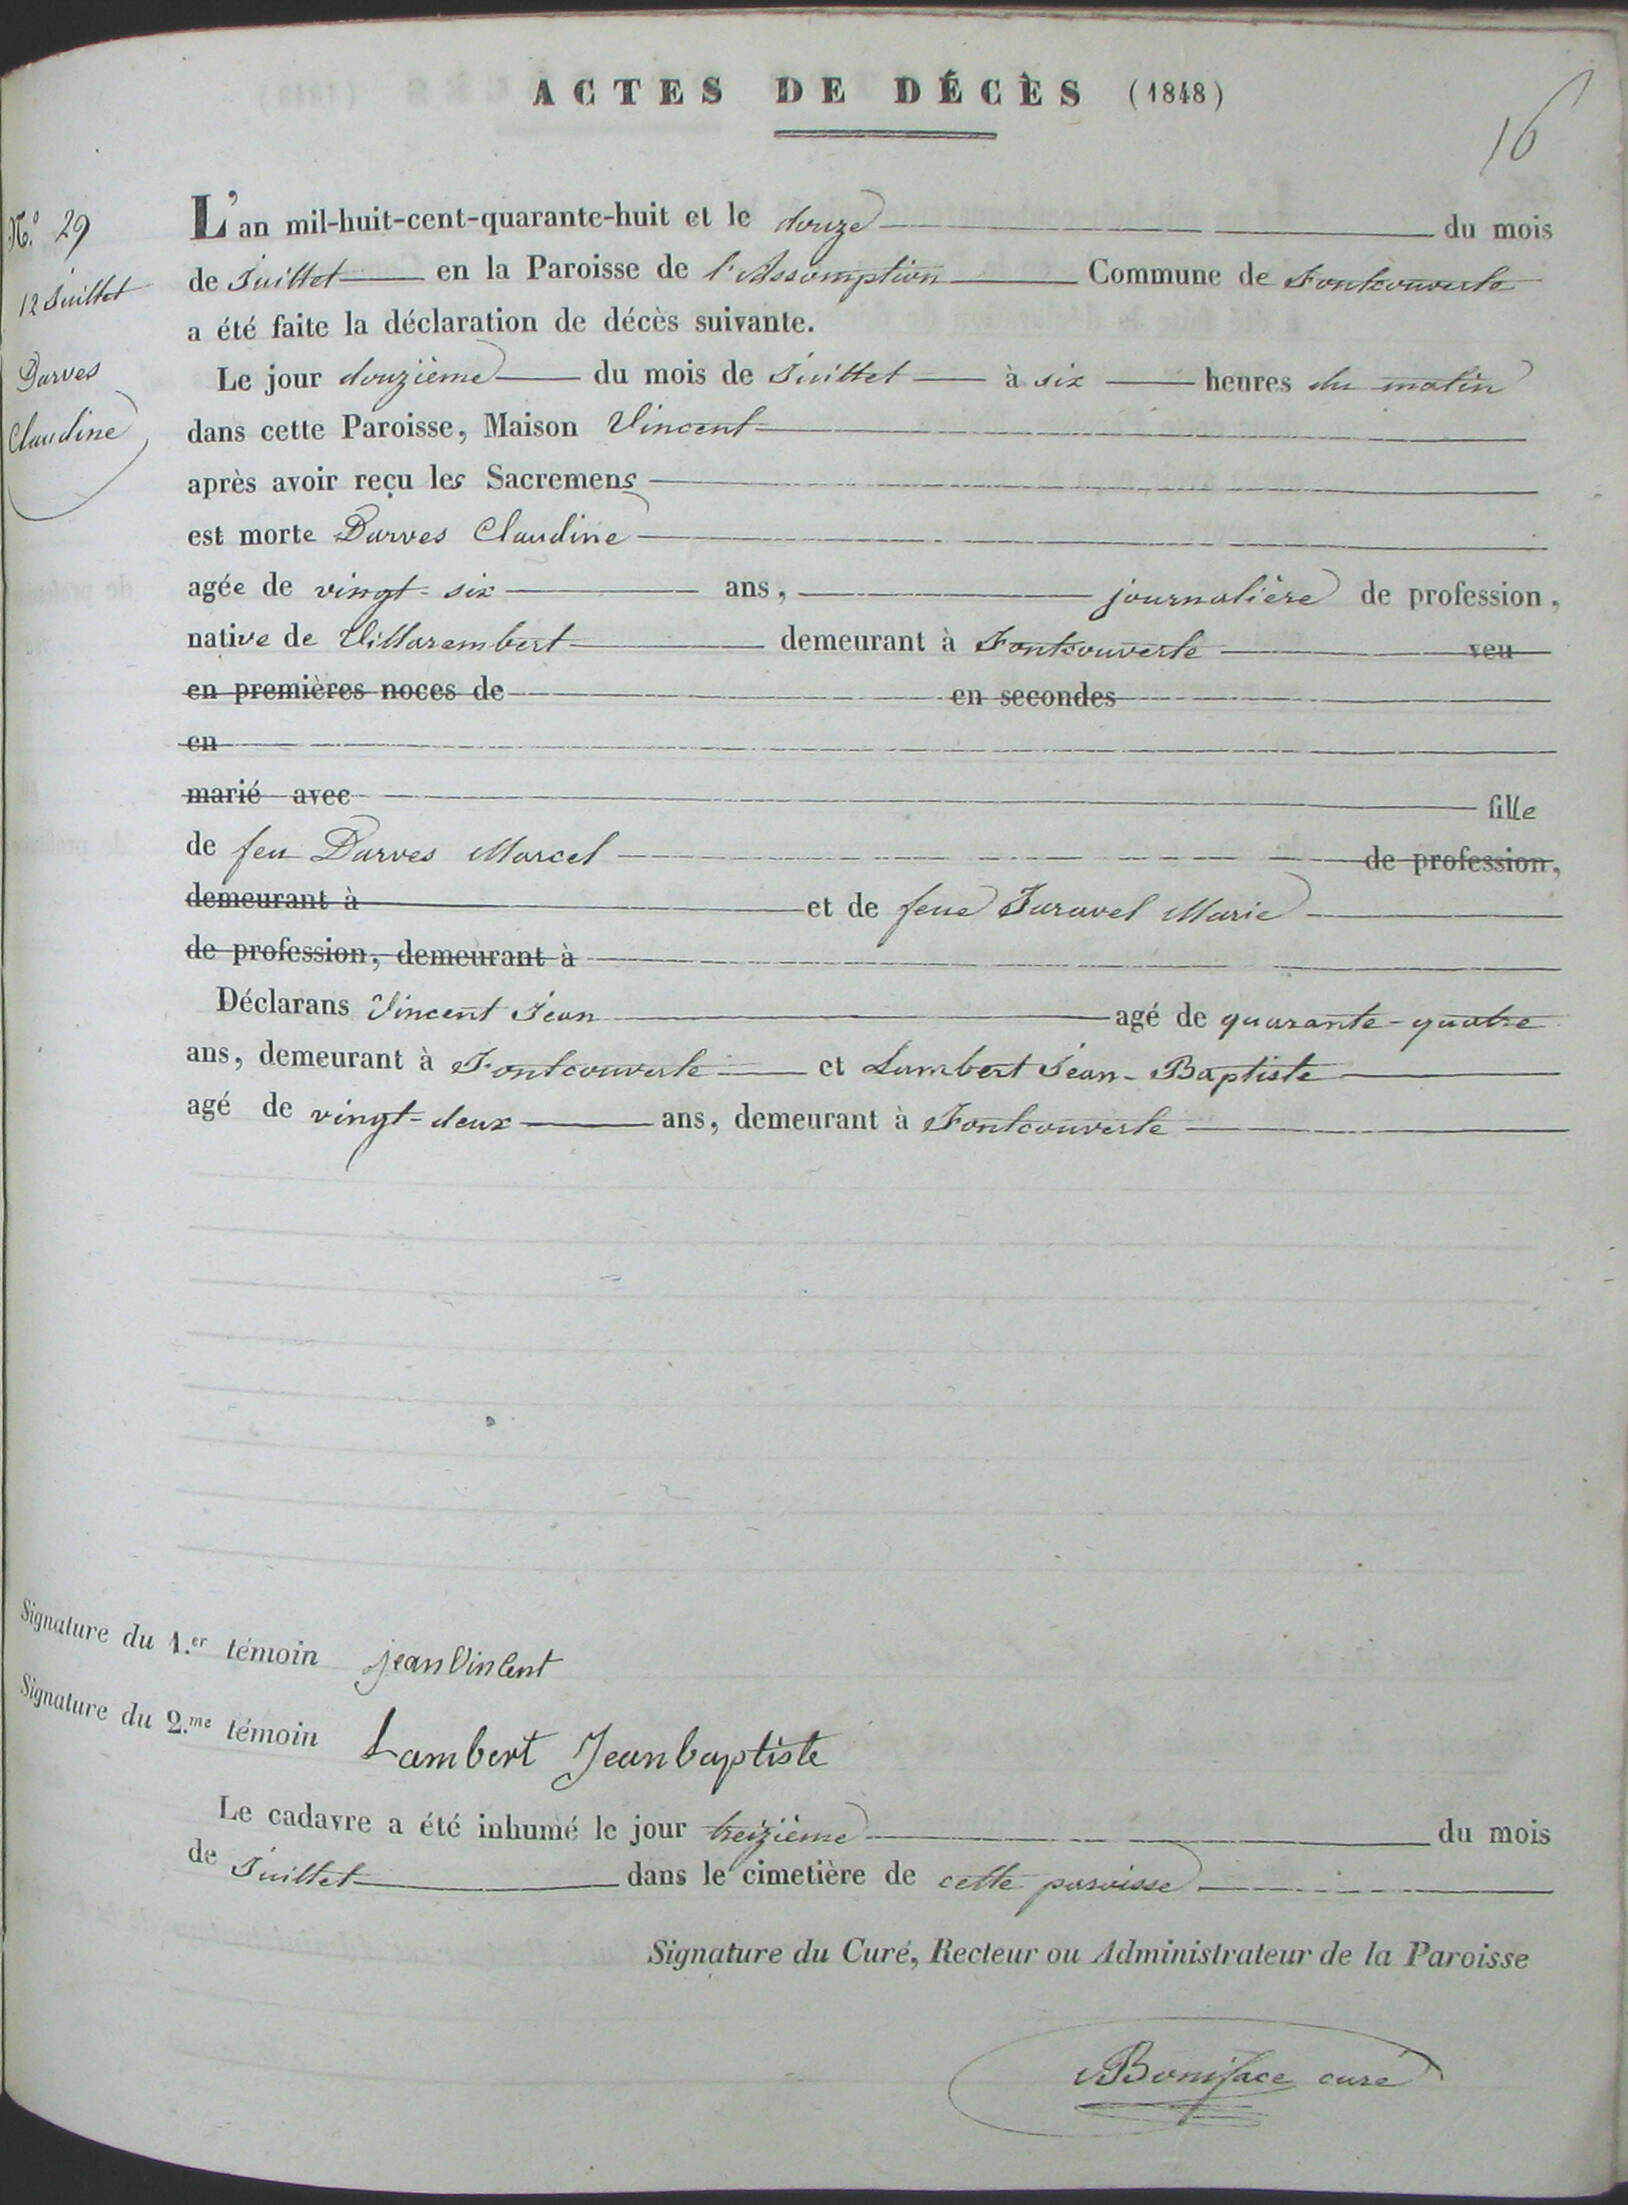 ACTES DE DÉCÈS (1848)
16
N.º 29
12 Juillet
Darves
Claudine
L'an mil-huit-cent-quarante-huit et le douze du mois
de Juillet en la Paroisse de l'Assomption Commune de Fontcouverte
a été faite la déclaration de décès suivante.
Le jour douzième du mois de Juillet à six heures du matin
dans cette Paroisse, Maison Vincent
après avoir reçu les Sacremens
est morte Darves Claudine
agée de vingt-six ans, journalière de profession,
native de Villarembert demeurant à Fontcouverte veu
en premières noces de en secondes
en
marié avec fille
de feu Darves Marcel de profession,
demeurant à et de feue Juravel Marie
de profession, demeurant à
Déclarans Vincent Jean agé de quarante-quatre
ans, demeurant à Fontcouverte et Lambert Jean-Baptiste
agé de vingt-deux ans, demeurant à Fontcouverte
Signature du 1.er témoin jean Vincent
Signature du 2.me témoin Lambert Jeanbaptiste
Le cadavre a été inhumé le jour treizième du mois
de Juillet dans le cimetière de cette paroisse
Signature du Curé, Recteur ou Administrateur de la Paroisse
Boniface curé